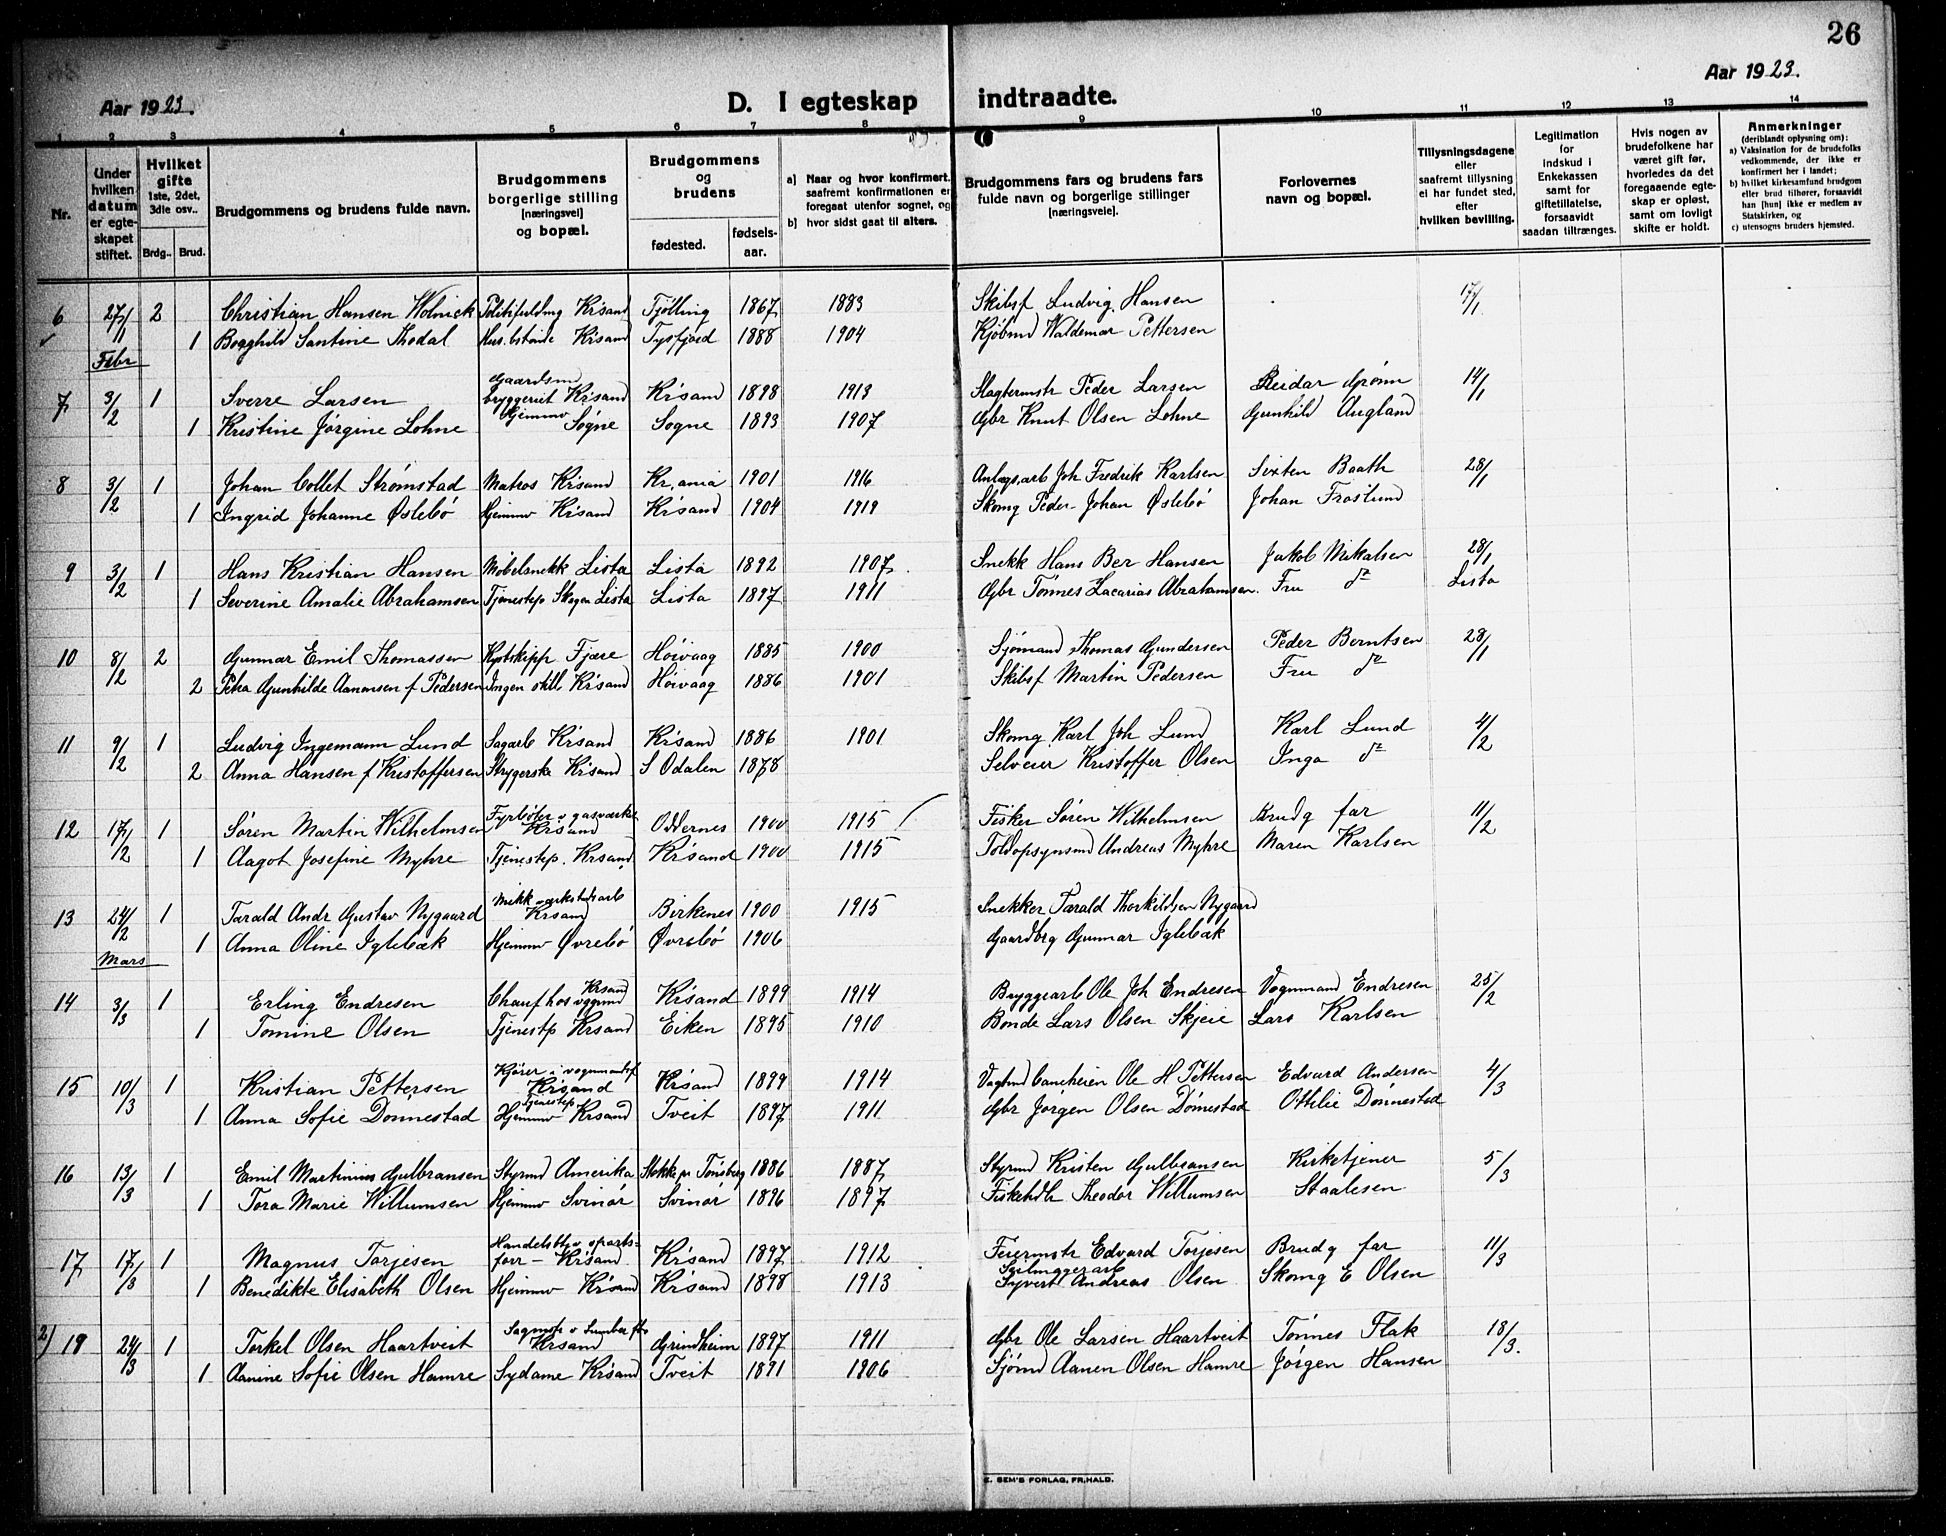 26
Aar 1923.
D. I egteskap indtraadte.
Aar 1923.
1 2 3 4 5 6 7 8 9 10 11 12 13 14
Nr.
Under hvilken datum er egteskapet stiftet.
Hvilket gifte 1ste, 2det, 3die osv..
Brdg.. Brud.
Brudgommens og brudens fulde navn.
Brudgommens borgerlige stilling [næringsvei] og bopæl.
Brudgommens og brudens
fødested. fødsels-aar.
a) Naar og hvor konfirmert, saafremt konfirmationen er foregaat utenfor sognet, og
b) hvor sidst gaat til alters.
Brudgommens fars og brudens fars fulde navn og borgerlige stillinger [næringsveie].
Forlovernes navn og bopæl.
Tillysningsdagene eller saafremt tillysning ei har fundet sted, efter hvilken bevilling.
Legitimation for indskud i Enkekassen samt for giftetillatelse, forsaavidt saadan tiltrænges.
Hvis nogen av brudefolkene har været gift før, hvorledes da det foregaaende egteskap er opløst, samt om lovligt skifte er holdt.
Anmerkninger (deriblandt oplysning om):
a) Vaksination for de brudefolks vedkommende, der ikke er konfirmert her i landet;
b) hvilket kirkesamfund brudgom eller brud tilhører, forsaavidt han [hun] ikke er medlem av Statskirken, og
c) utensogns bruders hjemsted.
6 27/1 2 Christian Hansen Wolnick Krsand Tjølling 1867 1883 Skibsf Ludvig Hansen 17/1
1 Bogghild Santine Thodal Krsand Tysfjord 1888 1904 Kjøbmd Waldemar Pettersen
Febr
7 3/2 1 Sverre Larsen Gaardsm bryggeriet Krsand Krsand 1898 1913 Slagtermstr Peder Larsen Reidar Grønn 14/1
1 Kristine Jørgine Lohne Hjemmv Søgne Søgne 1893 1907 Gbr Knut Olsen Lohne Gunhild Augland
8 3/2 1 Johan Collet Strømstad Matros Krsand Kr.ania 1901 1916 Anlægsarb Joh Fredrik Karlsen Sixten Baath 28/1
1 Ingrid Johanne Øslebø Hjemmv Krsand Krsand 1904 1919 Skomg Peder Johan Øslebø Johan Froslund
9 3/2 1 Hans Kristian Hansen Møbelsnekk Lista Lista 1892 1907 Snekk Hans Ber Hansen Jakob Mikalsen 28/1
1 Severine Amalie Abrahamsen Tjenestep Skogen Lista Lista 1897 1911 Gbr Tønnes Zacarias Abrahamsen. Fru do Lista
10 8/2 2 Gunnar Emil Thomassen Kystskipp Fjære Høivaag 1885 1900 Sjømand Thomas Gundersen Peder Berntsen 28/1
2 Petra Gunhilde Aanonsen f Pedersen Ingen still Krsand Høivaag 1886 1901 Skibsf Martin Pedersen Fru do
11 9/2 1 Ludvig Ingemann Lund Sagarb Krsand Krsand 1886 1901 Skomg Karl Joh Lund Karl Lund 4/2
2 Anna Hansen f Kristoffersen Strygerske Krsand S Odalen 1878 Selveier Kristoffer Olsen Inga do
12 17/2 1 Søren Martin Wilhelmsen Fyrbøter v gasverket Krsand Oddernes 1900 1915 Fisker Søren Wilhelmsen Brudg far 11/2
1 Aagot Josefine Myhre Tjenestep. Krsand Krsand 1900 1915 Toldopsynsmd Andreas Myhre Maren Karlsen
13 24/2 1 Tarald Andr Gustav Nygaard Mekk verkstedsarb Krsand Birkenes 1900 1915 Snekker Tarald Thorkildsen Nygaard
1 Anna Oline Iglebæk Hjemmv Øvrebø Øvrebø 1906 Gaardbrg Gunnar Iglebæk
Mars
14 3/3 1 Erling Endresen Chauf hos vognmd Krsand Krsand 1899 1914 Bryggearb Ole Joh Endresen Vognmand Endresen 25/2
1 Tomine Olsen Tjenestp Krsand Eiken 1895 1910 Bonde Lars Olsen Skjeie Lars Karlsen
15 10/3 1 Kristian Pettersen Kjører i vognmandsf Krsand Krsand 1899 1914 Ole H Pettersen Edvard Andersen 4/3
1 Anna Sofie Dønnestad Tjenestep Hjemmv Krsand Tveit 1897 1911 Gbr Jørgen Olsen Dønnestad Ottilie Dønnestad
16 13/3 1 Emil Martinius Gulbransen Styrmd Amerika Stokke pr Tønsberg 1886 1887 Styrmd Kristen Gulbransen Kirketjener 5/3
1 Tora Marie Willumsen Hjemmv Svinør Svinør 1896 1897 Fiskehdl Theodor Willumsen Staalesen
17 17/3 1 Magnus Torjesen Handelsbty v sportsforr - Krsand Krsand 1897 1912 Feiermstr Edvard Torjesen Brudg far 11/3
1 Benedikte Elisabeth Olsen Hjemmv Krsand Krsand 1898 1913 Syvert Andreas Olsen Skomg E Olsen
2) 19 24/3 1 Torkel Olsen Haartveit Sagmstr v Krsand Grindheim 1897 1911 Gbr Ole Larsen Haartveit Tønnes Flak 18/3.
1 Aanine Sofie Olsen Hamre Sydame Krsand Tveit 1891 1906 Sjømd Aanen Olsen Hamre Jørgen Hansen
E. SEM'S FORLAG, FR.HALD.